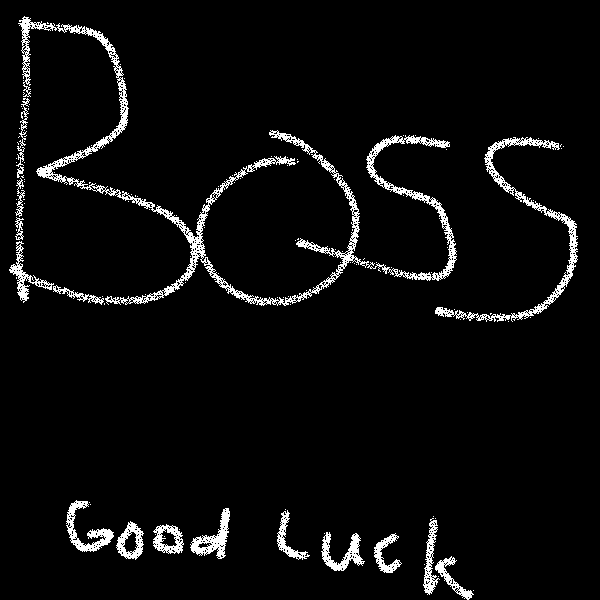 Boss
Good Luck